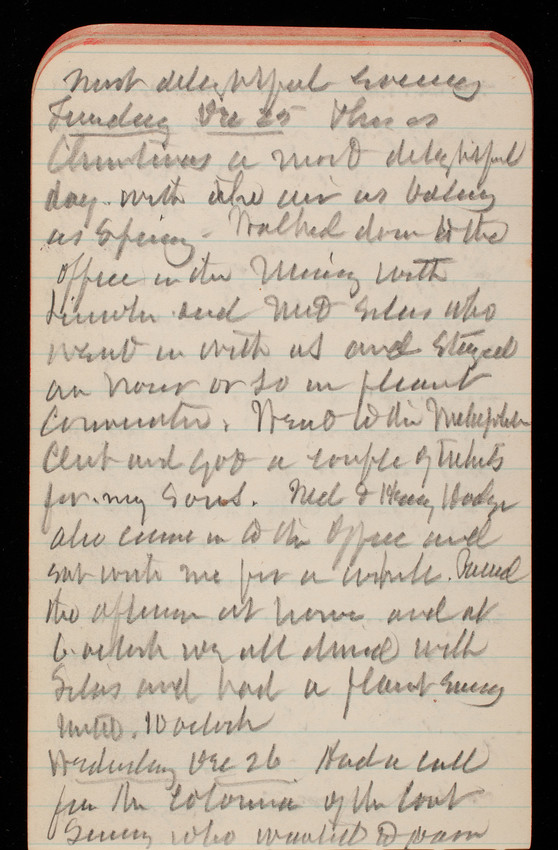 most delightful evening
Tuesday Dec 25 This is
Christmas a most delightful
day. with the air as balmy
as Spring - Walked down to the
office in the Morning with
Lincoln and met Silas who
went in with us and stayed
an hour or so in pleasant
Conversation. Went to the Metropolitan
Club and got a couple of tickets
for my sons. Ned & Henry Hodges
also came in to the Office and
sat with me for a while. Passed
the afternoon at home and at
6 oclock we all dined with
Silas and had a pleasant evening
until 10 oclock
Wednesday Dec 26. Had a call
from the of the Coat
who wanted to